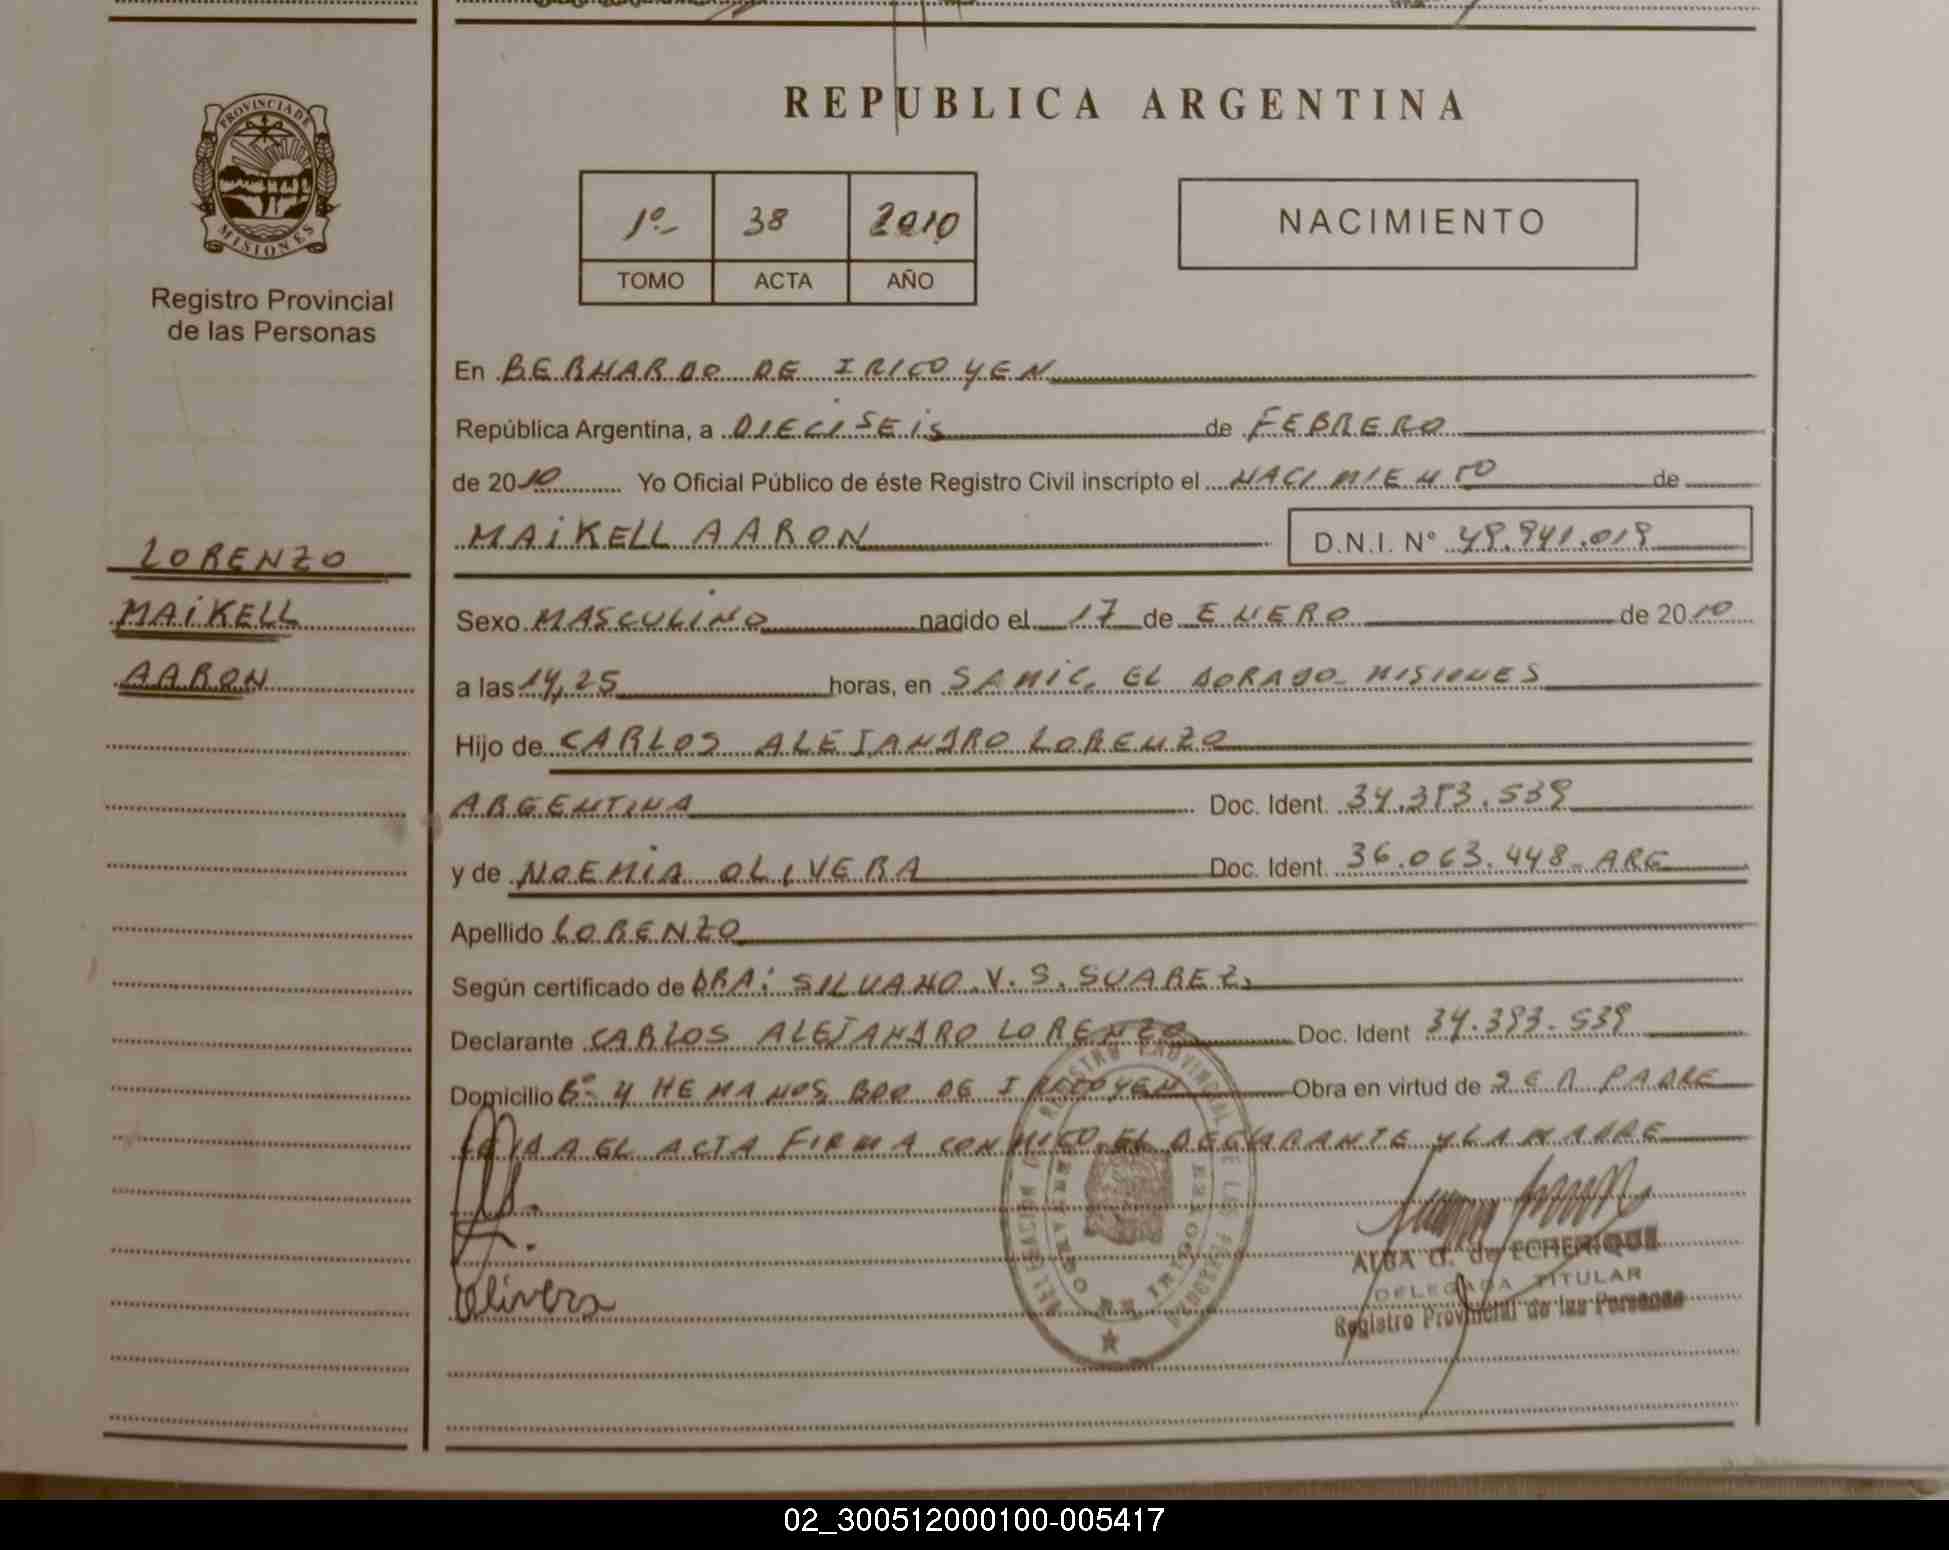 REPUBLICA ARGENTINA
PROVINCIA DE
MISIONES
Registro Provincial
de las Personas
1º 38 2010
TOMO ACTA AÑO
NACIMIENTO
En BERNARDO DE IRICOYEN
República Argentina, a DIECISEIS de FEBRERO
de 2010 Yo Oficial Público de éste Registro Civil inscripto el NACIMIENTO de
MAIKELL AARON D.N.I. Nº
LORENZO
MAIKELL
AARON
Sexo MASCULINO nacido el 17 de ENERO de 2010
a las 14,25 horas, en SAMIC EL DORADO MISIONES
Hijo de CARLOS ALEJANDRO LORENZO
ARGENTINA Doc. Ident.
y de NOEMIA OLIVERA Doc. Ident. 36.063.448 ARG
Apellido LORENZO
Según certificado de DRA: SILVANO V. S. SUAREZ
Declarante CARLOS ALEJANDRO LORENZO Doc. Ident 34.393.539
Domicilio Bº 4 HEMANOS BDO DE IRICOYEN Obra en virtud de SER PADRE
LEIDA EL ACTA FIRMA CONMIGO EL DECLARANTE Y LA MADRE
Olivera
ALBA G. de ECHERIQUE
DELEGADA TITULAR
Registro Provincial de las Personas
02_300512000100-005417